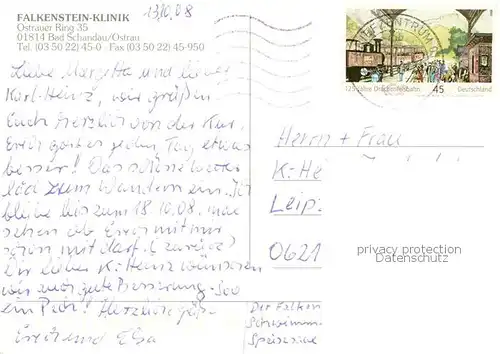 FALKENSTEIN-KLINIK
Ostrauer Ring 35
01814 Bad Schandau/Ostrau
Tel. (03 50 22) 45-0 Fax (03 50 22) 45-950
13.10.08
Liebe Margitta und lieber
Karl-Heinz, wir grüßen
Euch herzlich von der Kur.
geht es jeden Tag etwas
besser! Das schöne Wetter
läd zum Wandern ein. Ich
bleibe bis zum 18.10.08, mal
sehen ob Erich mit mir
schon mit darf. (zurück)
Dir lieber K.-Heinz wünschen
wir auch gute Besserung. So
ein Pech! Herzliche Grüße
Erich und Elsa
125 Jahre Drachenfelsbahn 45 Deutschland
BRIEFZENTRUM
Herrn + Frau
K.-He
Leip
0621
privacy protection
Datenschutz
Der Falken
Schwimm
Speisesaa